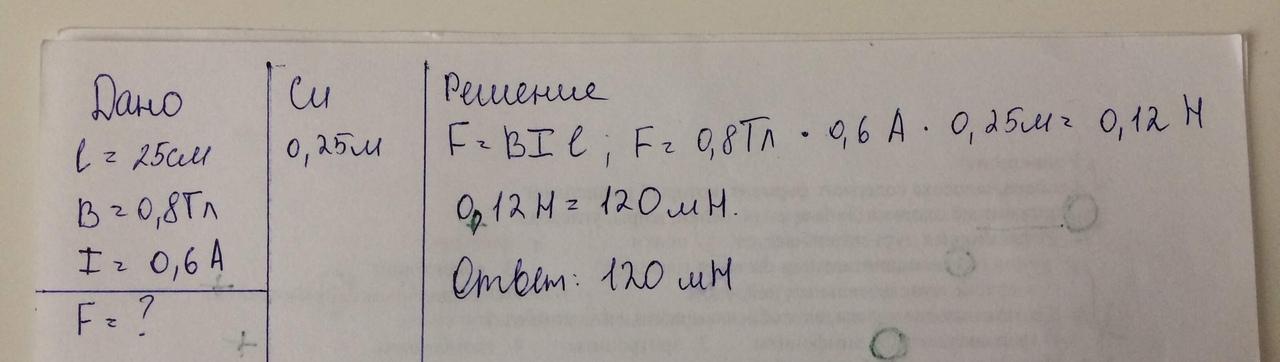 Дано
l = 25см
B = 0,8Тл
I = 0,6 А
F = ?
Си
0,25м
Решение
F = BIl ; F = 0,8Тл · 0,6 А · 0,25м = 0,12 Н
0,12Н = 120 мН.
Ответ: 120 мН